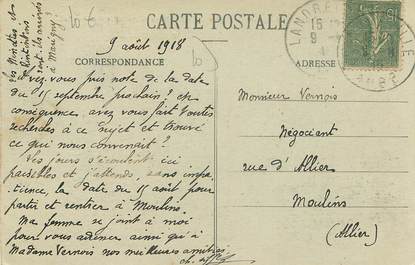 CARTE POSTALE
CORRESPONDANCE
ADRESSE
9 août 1918
Avez vous pris note de la date
du 15 septembre prochain? en
conséquence, avez vous fait toutes
recherches à ce sujet et trouvé
ce qui nous convenait?
Vos jours s'écoulent ici
paisibles et j'attends, sans impa
tience, la date du 15 août pour
partir et rentrer à Moulins.
Ma femme se joint à moi
pour vous adresser ainsi qu'à
Madame Vernois nos meilleures amitiés
à Marigny?
Monsieur Vernois
Négociant
rue d'Allier
Moulins
(Allier)